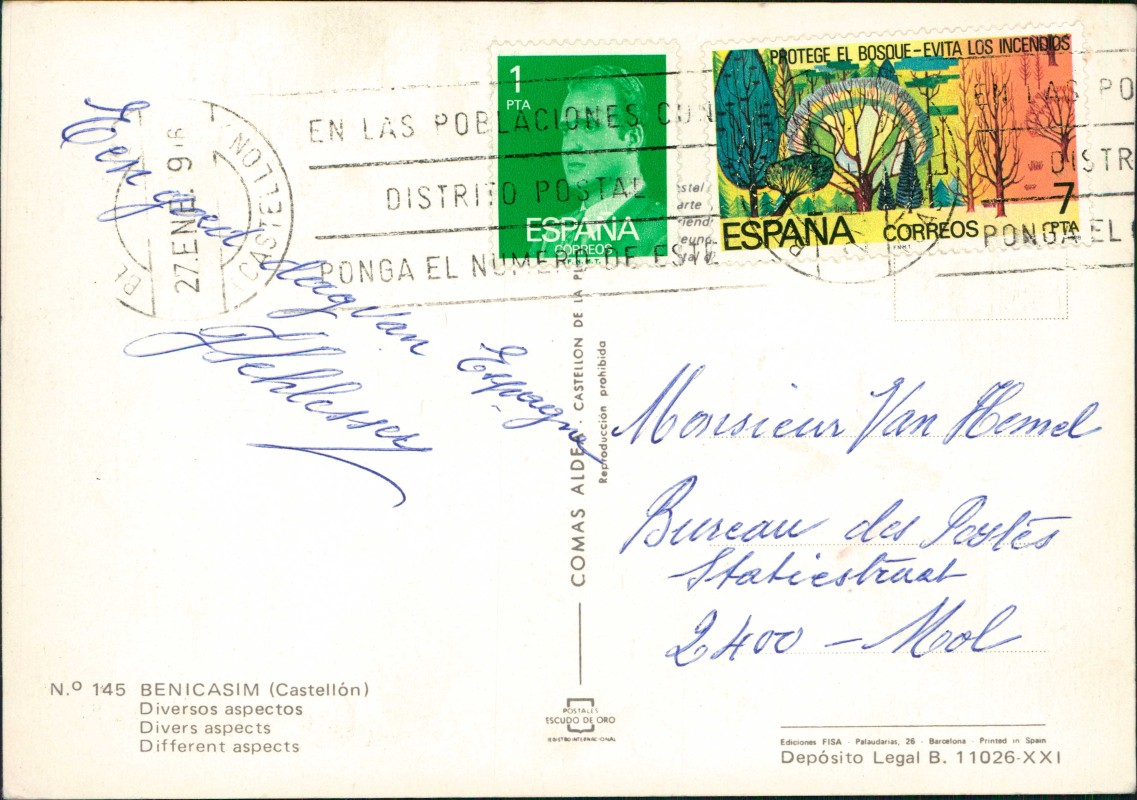 1
PTA
ESPAÑA
CORREOS
F.N.M.T.
PROTEGE EL BOSQUE-EVITA LOS INCENDIOS
7
PTA
ESPAÑA CORREOS
F.N.M.T.
(CASTELLON)
27 ENE. 9
EN LAS POBLACIONES CON
DISTRITO POSTAL
PONGA EL NUMERO DE ESTE
EN LAS PO
DISTR
PONGA EL
Een goed dag van
Espagne
Schlesser
COMAS ALDEA · CASTELLON DE LA PL
Reproducción prohibida
Monsieur Van Hemel
Bureau des Postes
Statiestraat
2400 - Mol
N.º 145 BENICASIM (Castellón)
Diversos aspectos
Divers aspects
Different aspects
POSTALES
ESCUDO DE ORO
REGISTRO INTERNACIONAL
Ediciones FISA · Palaudarias, 26 · Barcelona · Printed in Spain
Depósito Legal B. 11026-XXI